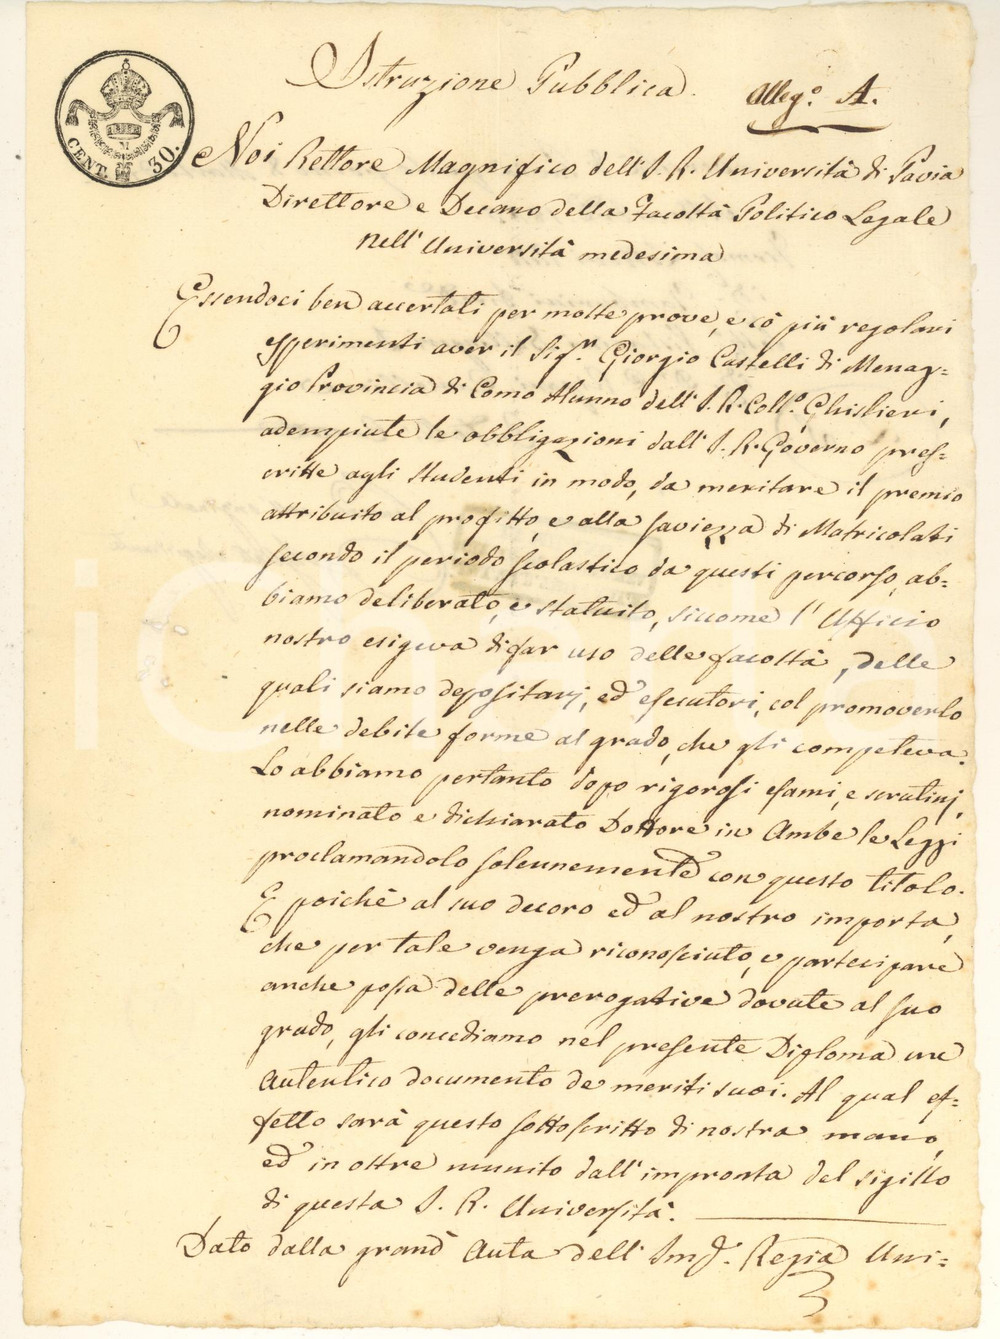 Istruzione Pubblica.
Alleg.o A.
CENT. 30.
Noi Rettore Magnifico dell'I. R. Università di Pavia
Direttore e Decano della Facoltà Politico Legale
nell'Università medesima
Essendoci ben accertati per molte prove, e cò più regolari
esperimenti aver il Sig.r Giorgio Castelli di Menag=
gio Provincia di Como Alunno dell'I. R. Coll.o Ghislieri,
adempiute le obbligazioni dall'I. R. Governo pres=
critte agli studenti in modo, da meritare il premio
attribuito al profitto, e alla saviezza di Matricolati
secondo il periodo scolastico da questi percorso, ab=
biamo deliberato, e statuito, siccome l'Ufficio
nostro esigeva di far uso delle facoltà, delle
quali siamo depositarj, ed esecutori, col promoverlo
nelle debite forme al grado, che gli competeva.
Lo abbiamo pertanto dopo rigorosi esami, e scrutinj,
nominato e dichiarato Dottore in Ambe le Leggi
proclamandolo solennemente con questo titolo.
E poichè al suo decoro ed al nostro importa,
che per tale venga riconosciuto, e partecipare
anche possa delle prerogative dovute al suo
grado, gli concediamo nel presente Diploma un
Autentico documento de meriti suoi. Al qual ef=
fetto sarà questo sottoscritto di nostra mano,
ed in oltre munito dall'impronta del sigillo
di questa I. R. Università.
Dato dalla grand'Aula dell'Imp. Regia Uni=